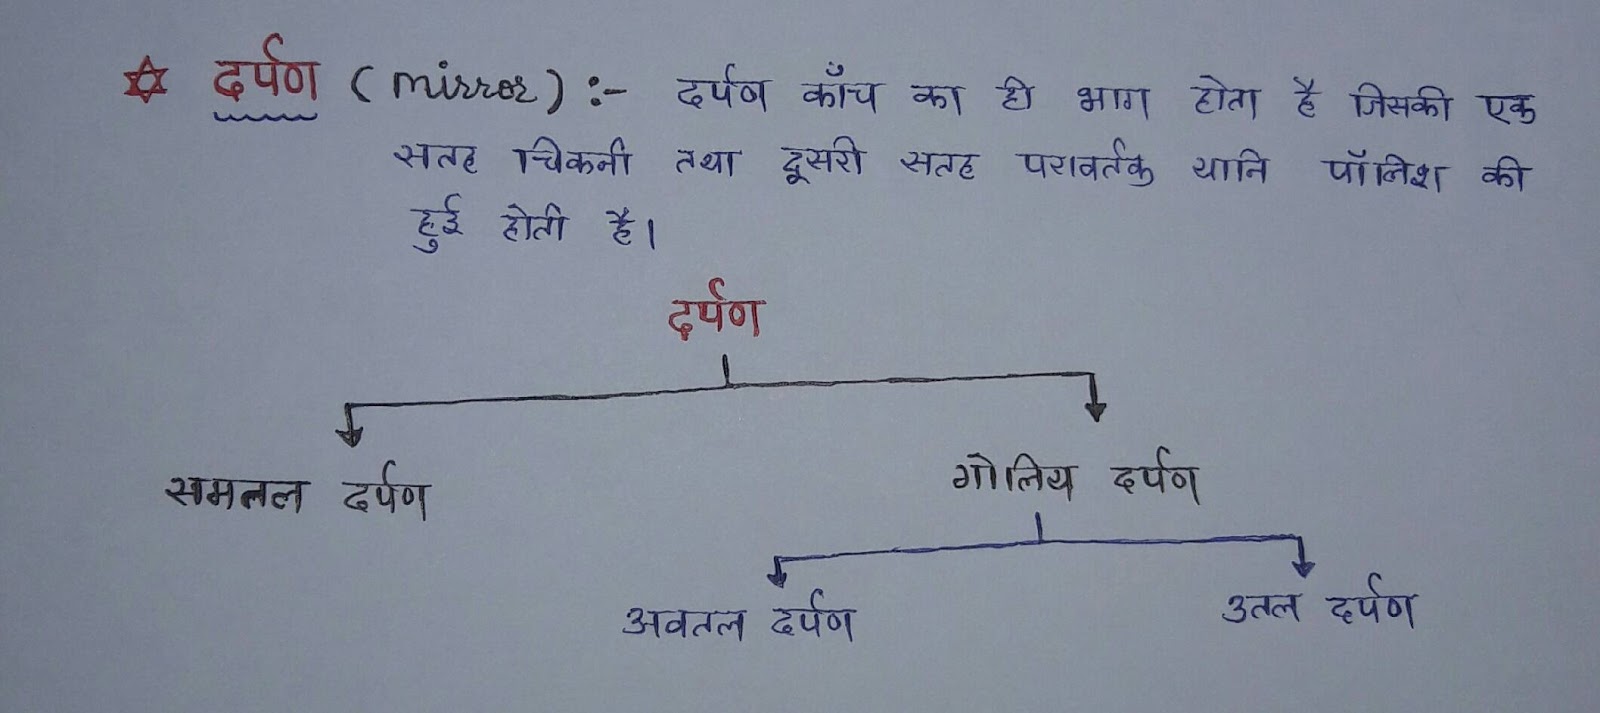 दर्पण (mirror) :- दर्पण काँच का ही भाग होता है जिसकी एक
सतह चिकनी तथा दूसरी सतह परावर्तक यानि पॉलिश की
हुई होती है।
दर्पण
समतल दर्पण
गोलिय दर्पण
अवतल दर्पण
उतल दर्पण